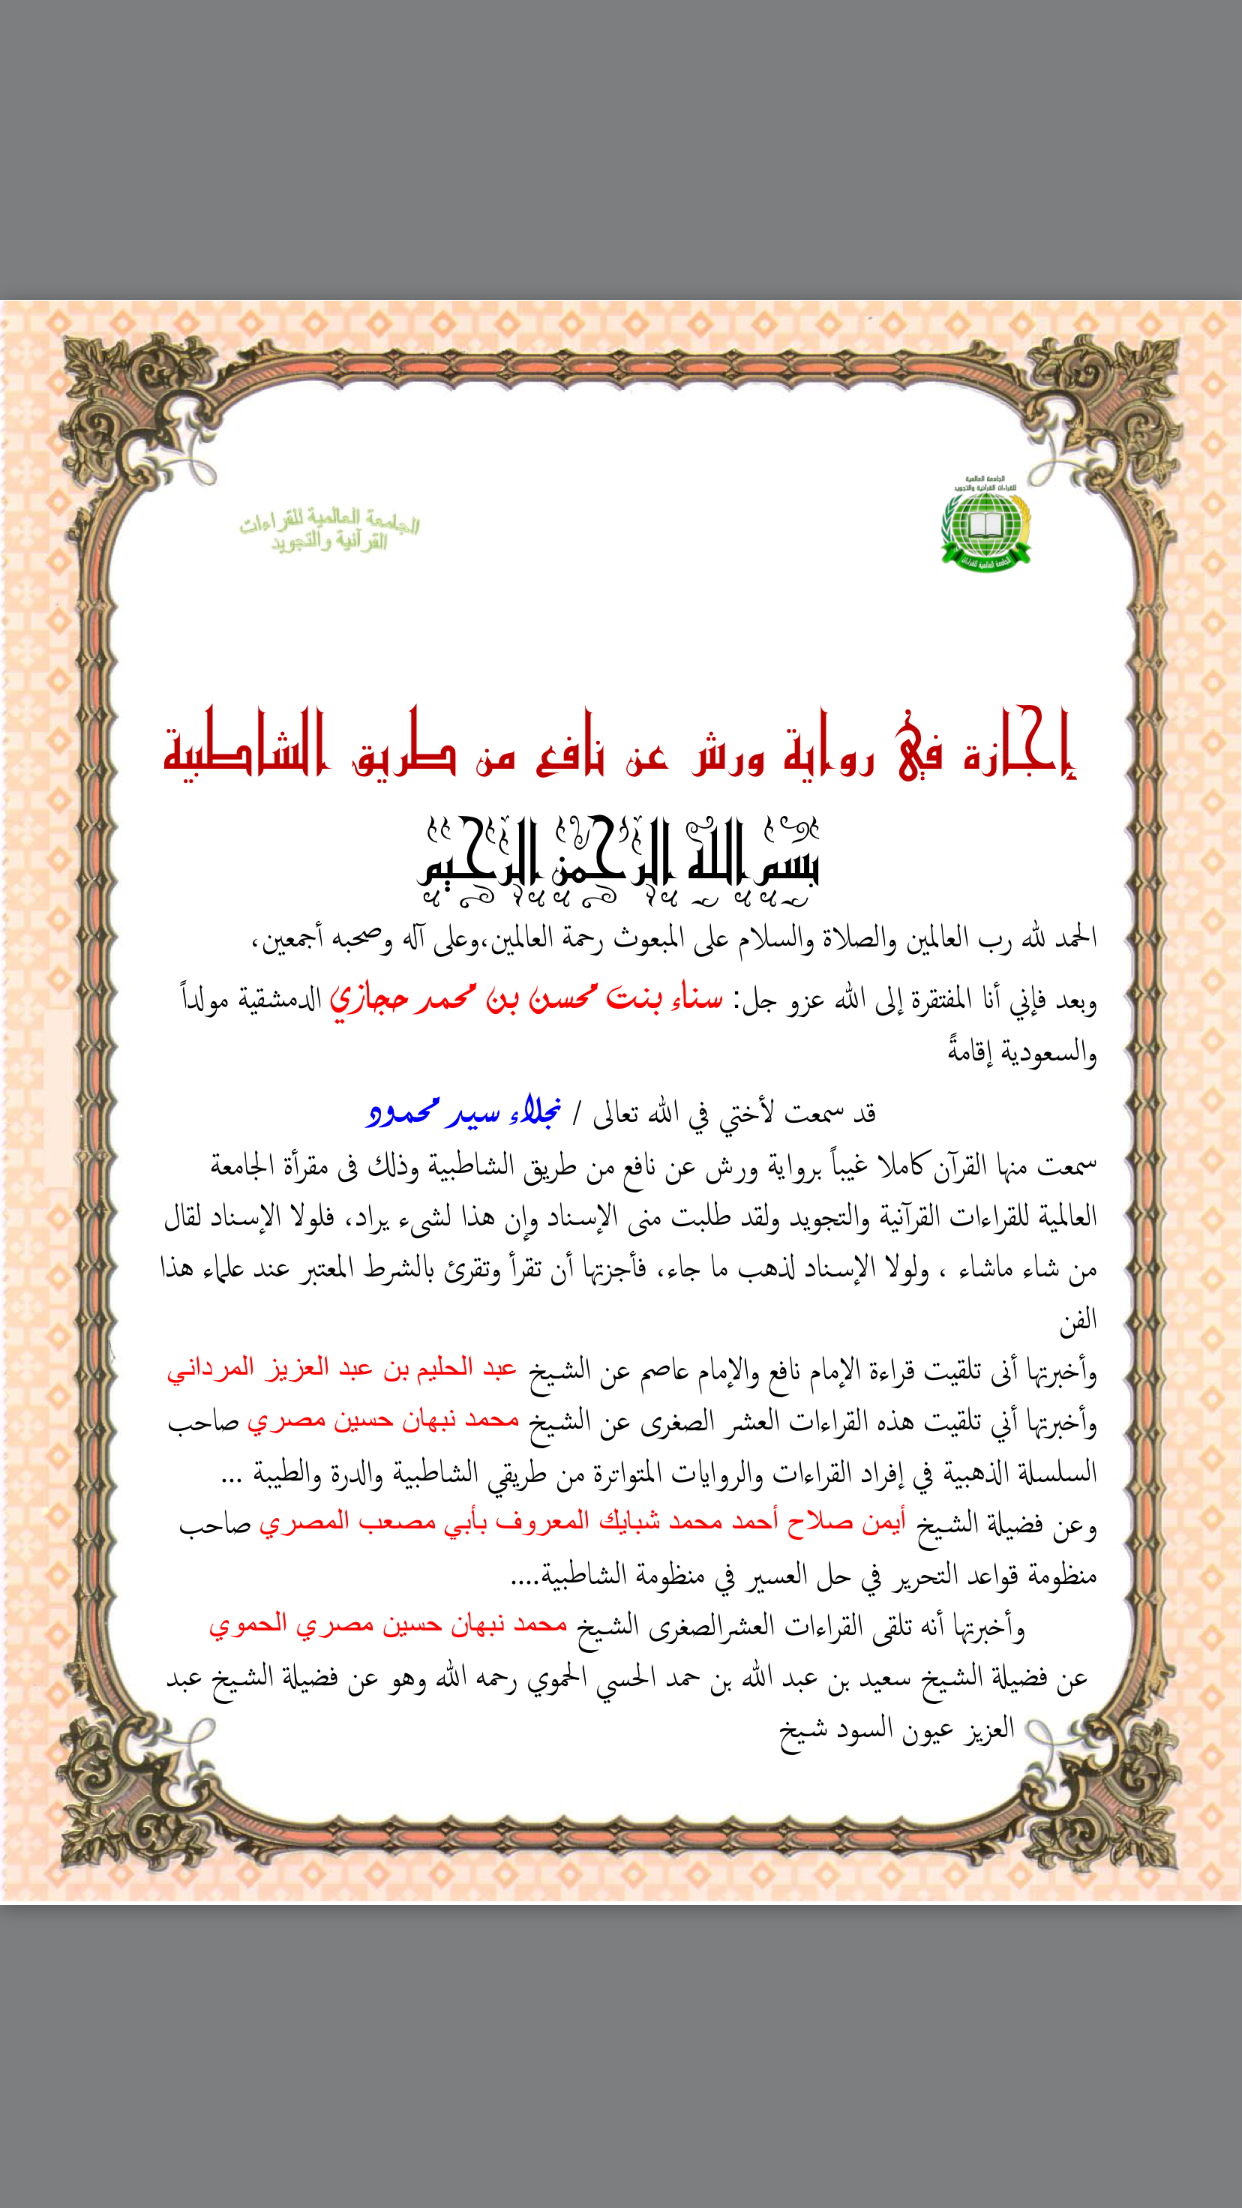 الجامعة العالمية
للقراءات القرآنية والتجويد
الجامعة العالمية للقراءات
الجامعة العالمية للقراءات
القرآنية والتجويد
إجازة في رواية ورش عن نافع من طريق الشاطبية
بسم الله الرحمن الرحيم
الحمد لله رب العالمين والصلاة والسلام على المبعوث رحمة العالمين،وعلى آله وصحبه أجمعين،
وبعد فإني أنا المفتقرة إلى الله عزو جل: سناء بنت محسن بن محمد حجازي الدمشقية مولداً
والسعودية إقامةً
قد سمعت لأختي في الله تعالى / نجلاء سيد محمود
سمعت منها القرآن كاملا غيباً برواية ورش عن نافع من طريق الشاطبية وذلك فى مقرأة الجامعة
العالمية للقراءات القرآنية والتجويد ولقد طلبت منى الإسناد وإن هذا لشىء يراد، فلولا الإسناد لقال
من شاء ماشاء ، ولولا الإسناد لذهب ما جاء، فأجزتها أن تقرأ وتقرئ بالشرط المعتبر عند علماء هذا
الفن
وأخبرتها أنى تلقيت قراءة الإمام نافع والإمام عاصم عن الشيخ عبد الحليم بن عبد العزيز المرداني
وأخبرتها أني تلقيت هذه القراءات العشر الصغرى عن الشيخ محمد نبهان حسين مصري صاحب
السلسلة الذهبية في إفراد القراءات والروايات المتواترة من طريقي الشاطبية والدرة والطيبة ...
وعن فضيلة الشيخ أيمن صلاح أحمد محمد شبايك المعروف بأبي مصعب المصري صاحب
منظومة قواعد التحرير في حل العسير في منظومة الشاطبية....
وأخبرتها أنه تلقى القراءات العشرالصغرى الشيخ محمد نبهان حسين مصري الحموي
عن فضيلة الشيخ سعيد بن عبد الله بن حمد الحسي الحموي رحمه الله وهو عن فضيلة الشيخ عبد
العزيز عيون السود شيخ